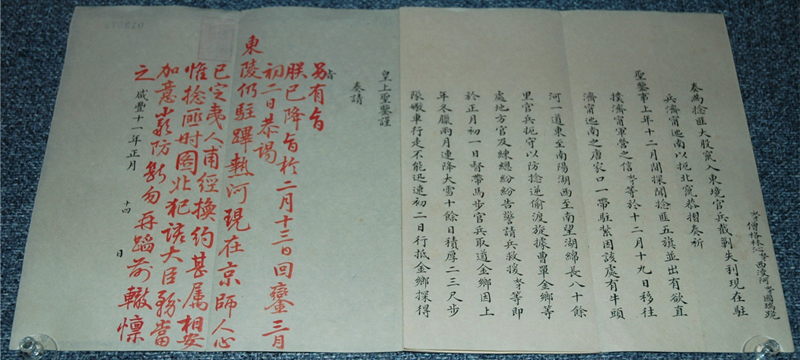 奴才僧格林沁奴才西凌阿奴才國瑞跪
奏為捻匪大股竄入東境官兵截剿失利現在駐
兵濟甯迤南以扼北竄恭摺奏祈
聖鑒事上年十二月間探聞捻匪五旗並出有欲直
撲濟甯軍營之信奴才等於十二月十九日移往
濟甯迤南之唐家口一帶駐紮因該處有牛頭
河一道東至南陽湖西至南望湖綿長八十餘
里官兵扼守以防捻逆偷渡旋據曹單金鄉等
處地方官及練總紛紛告警請兵救援奴才等即
於正月初一日督帶馬步官兵取道金鄉因上
年冬臘兩月連降大雪十餘日積厚二三尺步
隊礮車行走不能迅速初二日行抵金鄉探得
皇上聖鑒謹
奏請
另有旨
朕已降旨於二月十三日回鑾三月
初二日恭謁
東陵仍駐蹕熱河現在京師人心
已定夷人甫經換約甚屬相安
惟捻匪時圖北犯諸大臣務當
加意嚴防斷勿再蹈前轍懍
之
咸豐十一年正月 十四 日